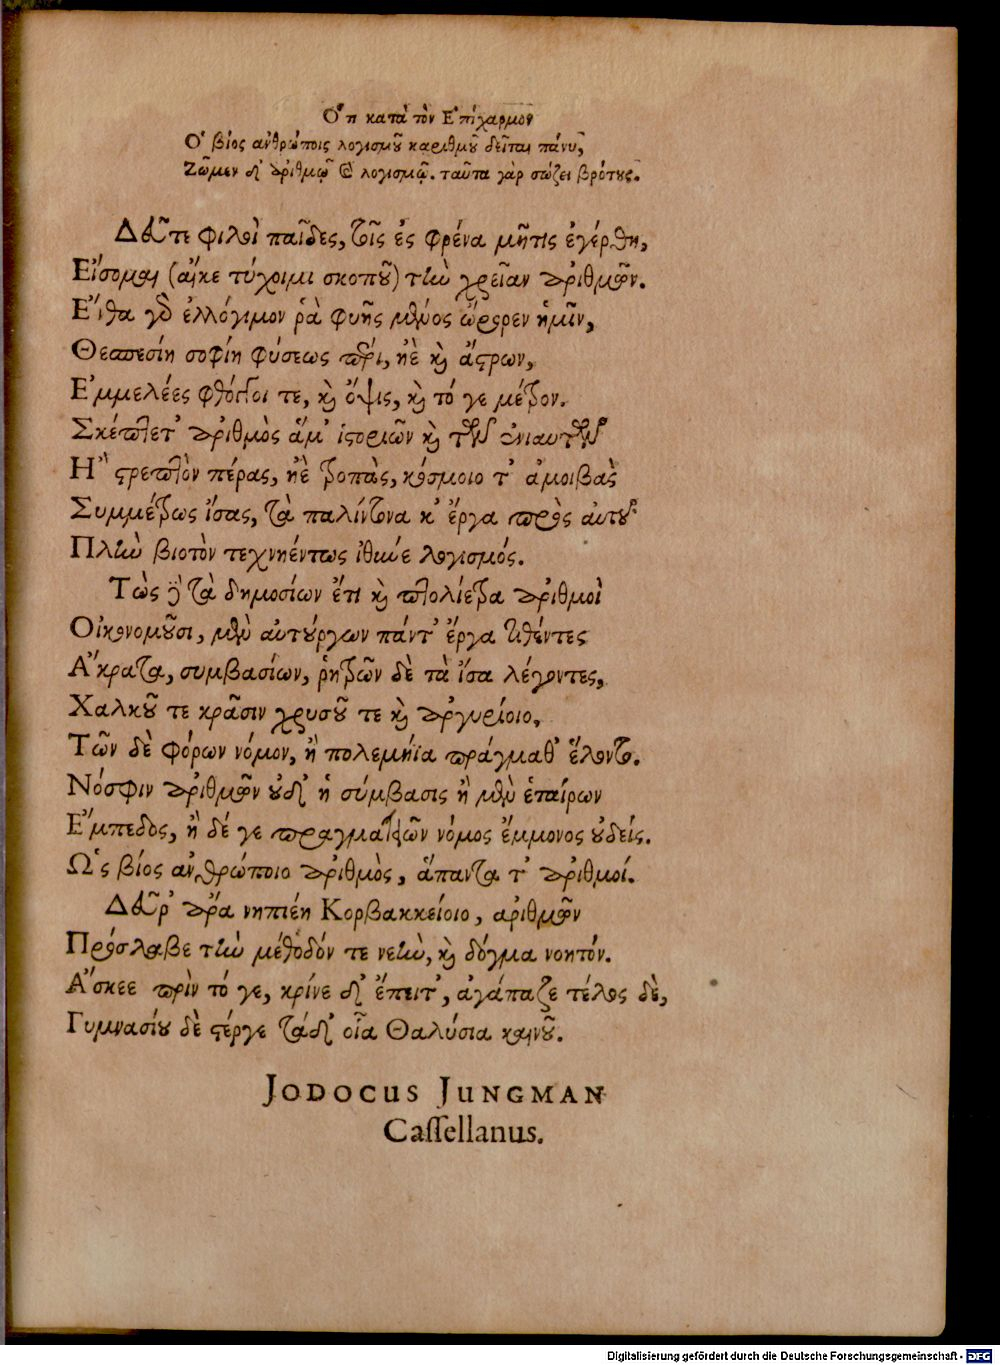 Ὅτι κατὰ τὸν Ἐπίχαρμον
Ὁ βίος ἀνθρώποις λογισμοῦ κἀριθμοῦ δεῖται πάνυ,
Ζῶμεν δ' ἀριθμῷ καὶ λογισμῷ. ταῦτα γὰρ σώζει βρότους.
Δεῦτε φίλοι παῖδες, τοῖς ἐς φρένα μῆτις ἐγέρθη,
Εἴσομαι (αἴκε τύχοιμι σκοποῦ) τὴν χρεῖαν ἀριθμῶν.
Ἔνθα γὰρ ἐλλόγιμον ῥὰ φυῆς μένος ὤρορεν ἡμῖν,
Θεσπεσίη σοφίη φύσεως πέρι, ἠὲ καὶ ἄστρων,
Ἐμμελέες φθόγγοι τε, καὶ ὄψις, καὶ τό γε μέτρον.
Σκέπτετ' ἀριθμὸς ἅμ' ἱστοριῶν καὶ τῶν ἐνιαυτῶν
Ἢ στρεπτὸν πέρας, ἠὲ τροπὰς, κόσμοιο τ' ἀμοιβὰς
Συμμέτρως ἴσας, τὰ παλίντονα κ' ἔργα πρὸς αὐτοῦ
Πλὴν βιοτὸν τεχνηέντως ἴθυνε λογισμός.
Τὼς δὲ τὰ δημοσίων ἔτι καὶ πτολίεθρα ἀριθμοὶ
Οἰκονομοῦσι, μὲν αὐτούργων πάντ' ἔργα τιθέντες
Ἄκρατα, συμβασίων, ῥητρῶν δὲ τὰ ἴσα λέγοντες,
Χαλκοῦ τε κρᾶσιν χρυσοῦ τε καὶ ἀργυρίοιο,
Τῶν δὲ φόρων νόμον, ἢ πολεμήϊα πράγμαθ' ἕλοντο.
Νόσφιν ἀριθμῶν οὐδ' ἡ σύμβασις ἢ μὲν ἑταίρων
Ἔμπεδος, ἢ δέ γε πραγματικῶν νόμος ἔμμονος οὐδείς.
Ὣς βίος ἀνθρώποιο ἀριθμὸς, ἅπαντα τ' ἀριθμοί.
Δεῦρ' ἄρα νηπιέη Κορβακκείοιο, ἀριθμῶν
Πρόσλαβε τὴν μέθοδόν τε νεὴν, καὶ δόγμα νοητόν.
Ἄσκεε πρὶν τό γε, κρίνε δ' ἔπειτ', ἀγάπαζε τέλος δὲ,
Γυμνασίου δὲ στέργε τάδ' οἷα Θαλύσια καινοῦ.
JODOCUS JUNGMAN
Casſellanus.
Digitalisierung gefördert durch die Deutsche Forschungsgemeinschaft - DFG